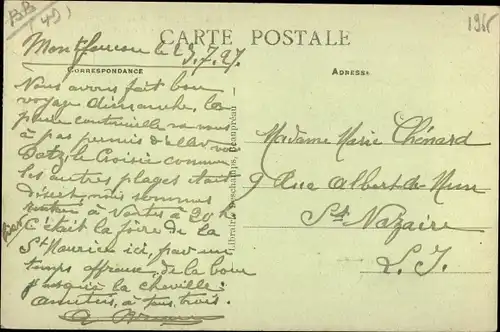 BB
(49)
1915
CARTE POSTALE
CORRESPONDANCE
ADRESSE
Montfaucon le 25.7.27.
Nous avons fait bon
voyage dimanche, la
pluie continuelle ne nous
à pas permis d'aller voir
Batz, le Croisic comme
les autres plages était
désert. nous sommes
rentrés à Nantes à 20h
C'était la foire de la
St Maurice ici, par un
temps affreux, de la boue
jusqu'à la cheville.
amitiés, à tous trois.
Librairie Deschamps, Beaupréau
Madame Marie Chénard
9 Rue Albert de Mun
St Nazaire
L. I.